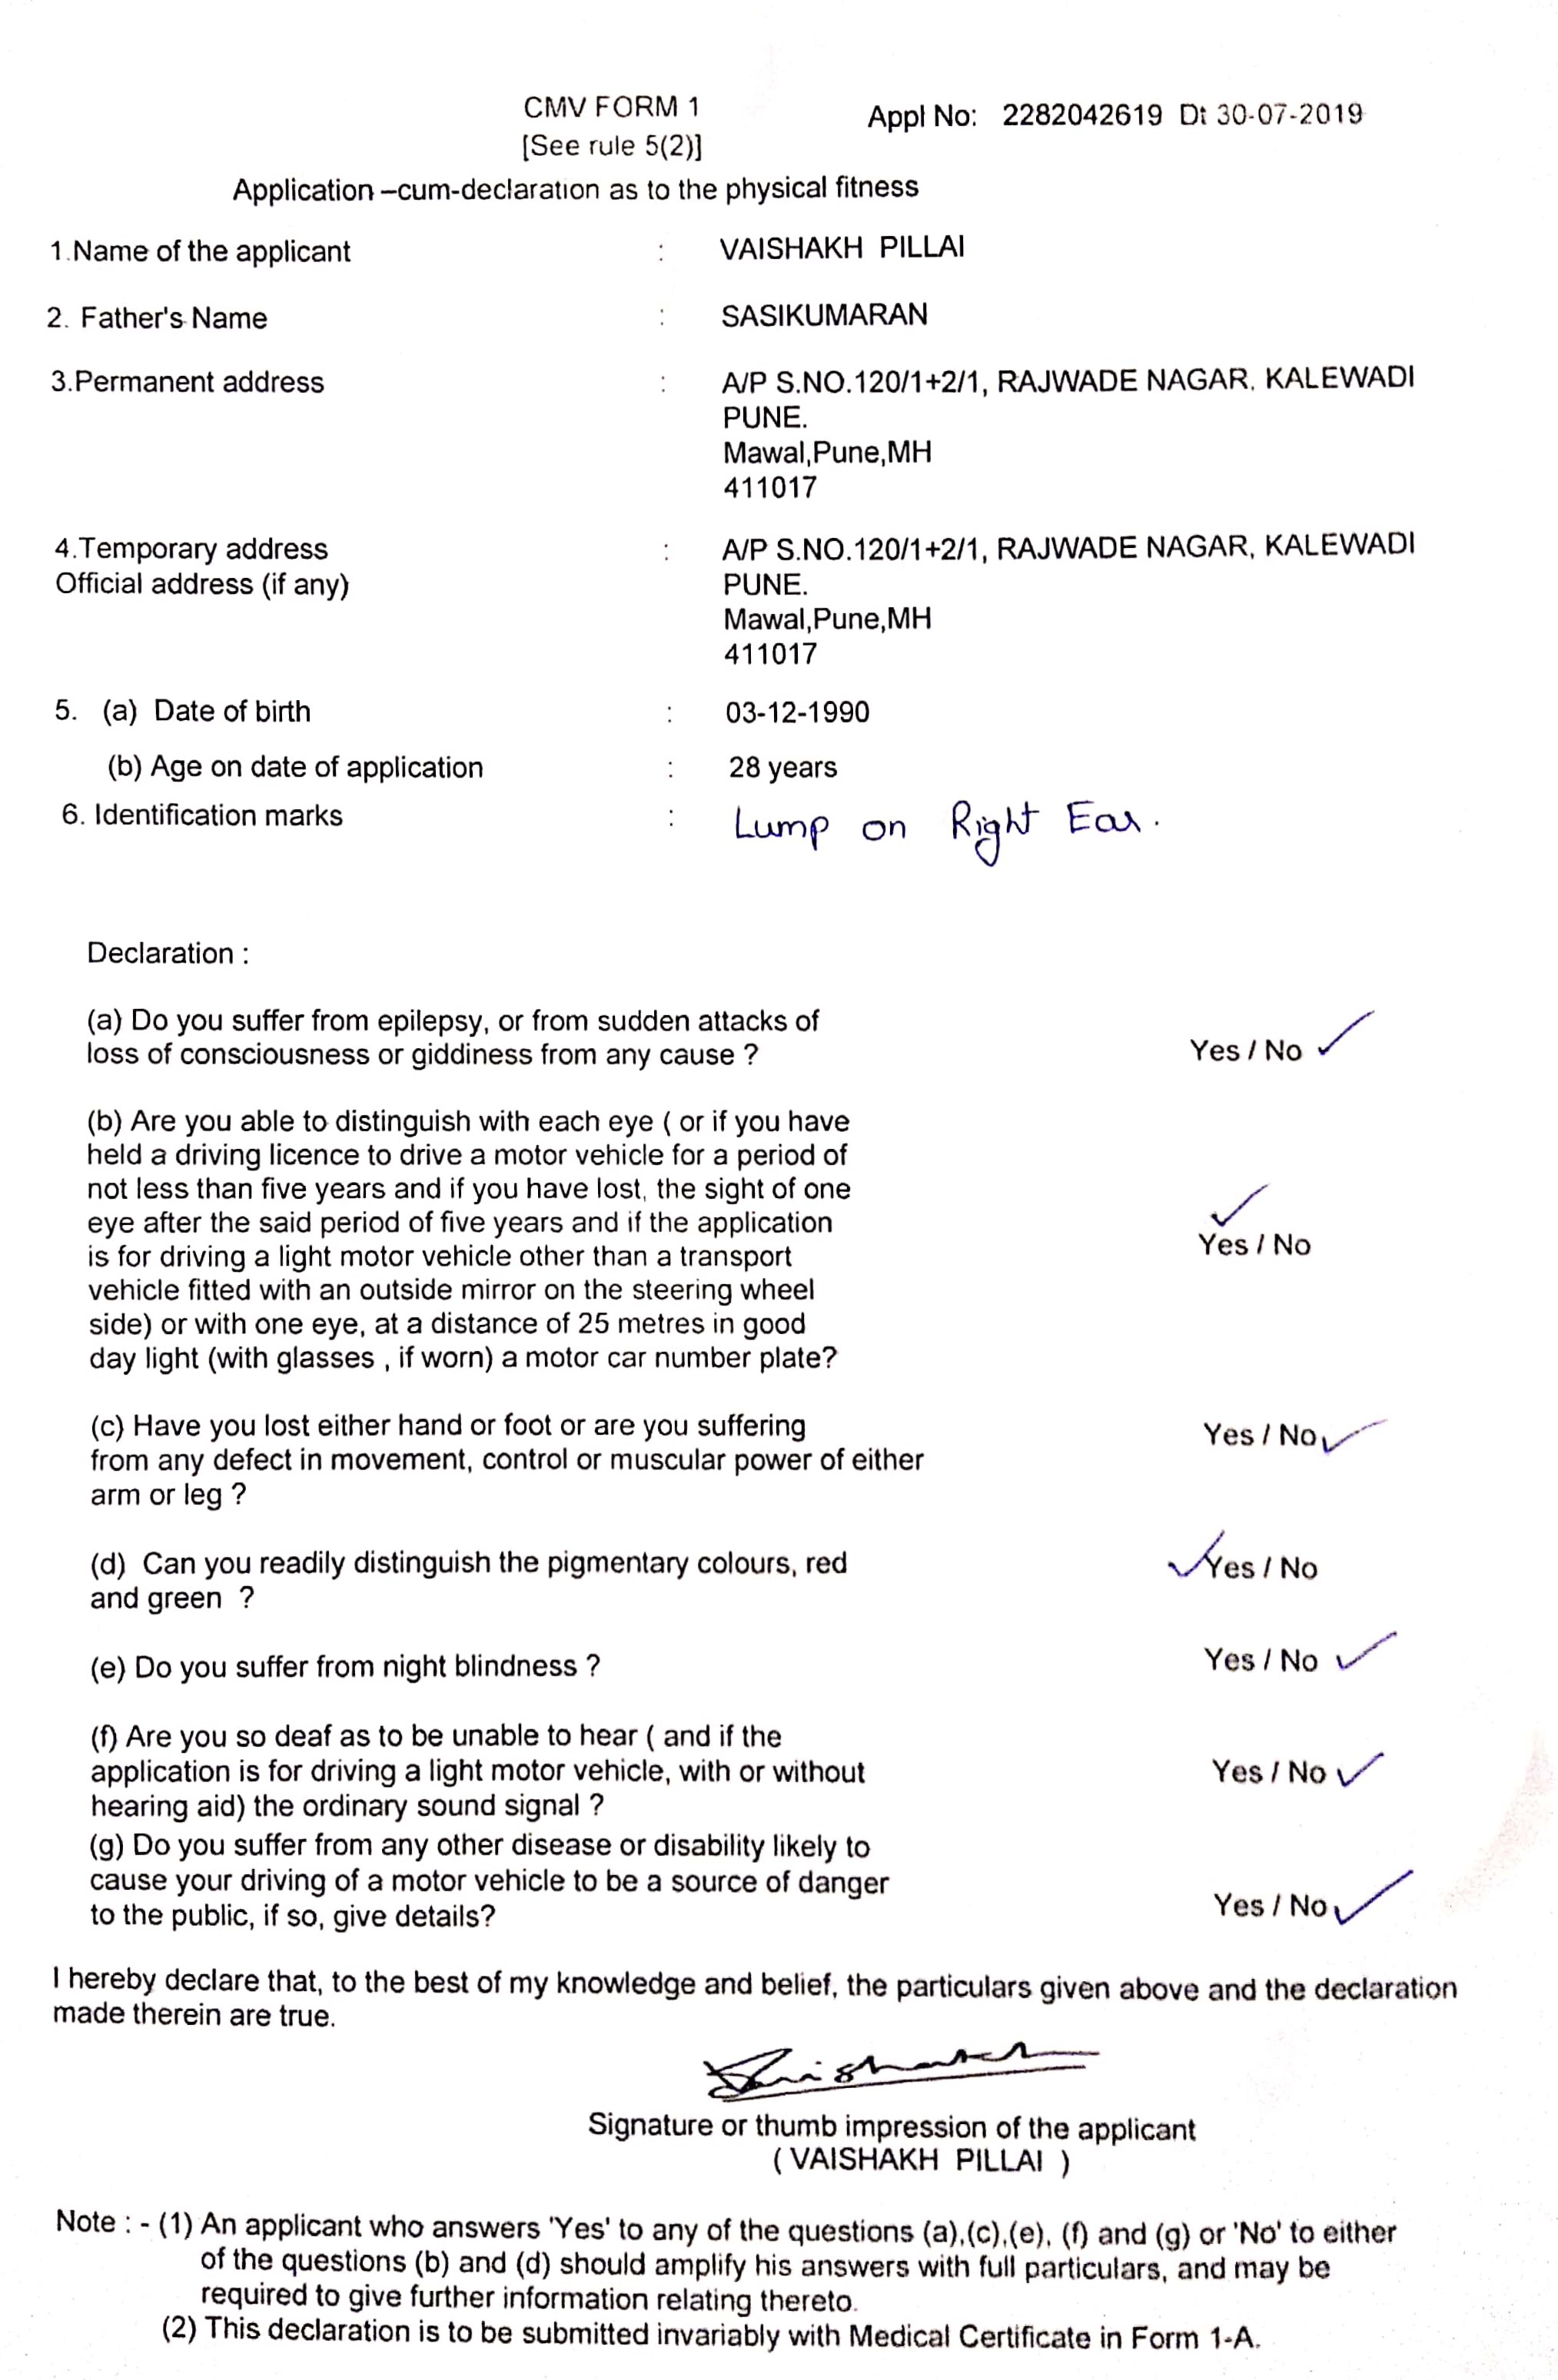 CMV FORM 1
Appl No: 2282042619 Dt 30-07-2019
[See rule 5(2)]
Application –cum-declaration as to the physical fitness
1.Name of the applicant : VAISHAKH PILLAI
2. Father's Name : SASIKUMARAN
3.Permanent address : A/P S.NO.120/1+2/1, RAJWADE NAGAR, KALEWADI
PUNE.
Mawal,Pune,MH
411017
4.Temporary address : A/P S.NO.120/1+2/1, RAJWADE NAGAR, KALEWADI
Official address (if any) PUNE.
Mawal,Pune,MH
411017
5. (a) Date of birth : 03-12-1990
(b) Age on date of application : 28 years
6. Identification marks : Lump on Right Ear.
Declaration :
(a) Do you suffer from epilepsy, or from sudden attacks of
loss of consciousness or giddiness from any cause ? Yes / No ✓
(b) Are you able to distinguish with each eye ( or if you have
held a driving licence to drive a motor vehicle for a period of
not less than five years and if you have lost, the sight of one
eye after the said period of five years and if the application ✓
is for driving a light motor vehicle other than a transport Yes / No
vehicle fitted with an outside mirror on the steering wheel
side) or with one eye, at a distance of 25 metres in good
day light (with glasses , if worn) a motor car number plate?
(c) Have you lost either hand or foot or are you suffering Yes / No ✓
from any defect in movement, control or muscular power of either
arm or leg ?
(d) Can you readily distinguish the pigmentary colours, red ✓ Yes / No
and green ?
(e) Do you suffer from night blindness ? Yes / No ✓
(f) Are you so deaf as to be unable to hear ( and if the
application is for driving a light motor vehicle, with or without Yes / No ✓
hearing aid) the ordinary sound signal ?
(g) Do you suffer from any other disease or disability likely to
cause your driving of a motor vehicle to be a source of danger
to the public, if so, give details? Yes / No ✓
I hereby declare that, to the best of my knowledge and belief, the particulars given above and the declaration
made therein are true.
Vaishakh
Signature or thumb impression of the applicant
( VAISHAKH PILLAI )
Note : - (1) An applicant who answers 'Yes' to any of the questions (a),(c),(e), (f) and (g) or 'No' to either
of the questions (b) and (d) should amplify his answers with full particulars, and may be
required to give further information relating thereto.
(2) This declaration is to be submitted invariably with Medical Certificate in Form 1-A.